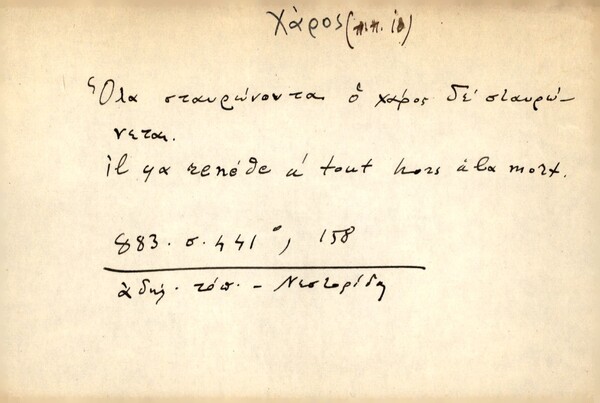 Χάρος (π.π. ιδ)
Όλα σταυρώνονται ὁ χάρος δέ σταυρώ-
νεται.
il ya remède à tout hors à la mort.
883. σ. 441, 158
ἀδήλ. τόπ. - Νεστορίδη